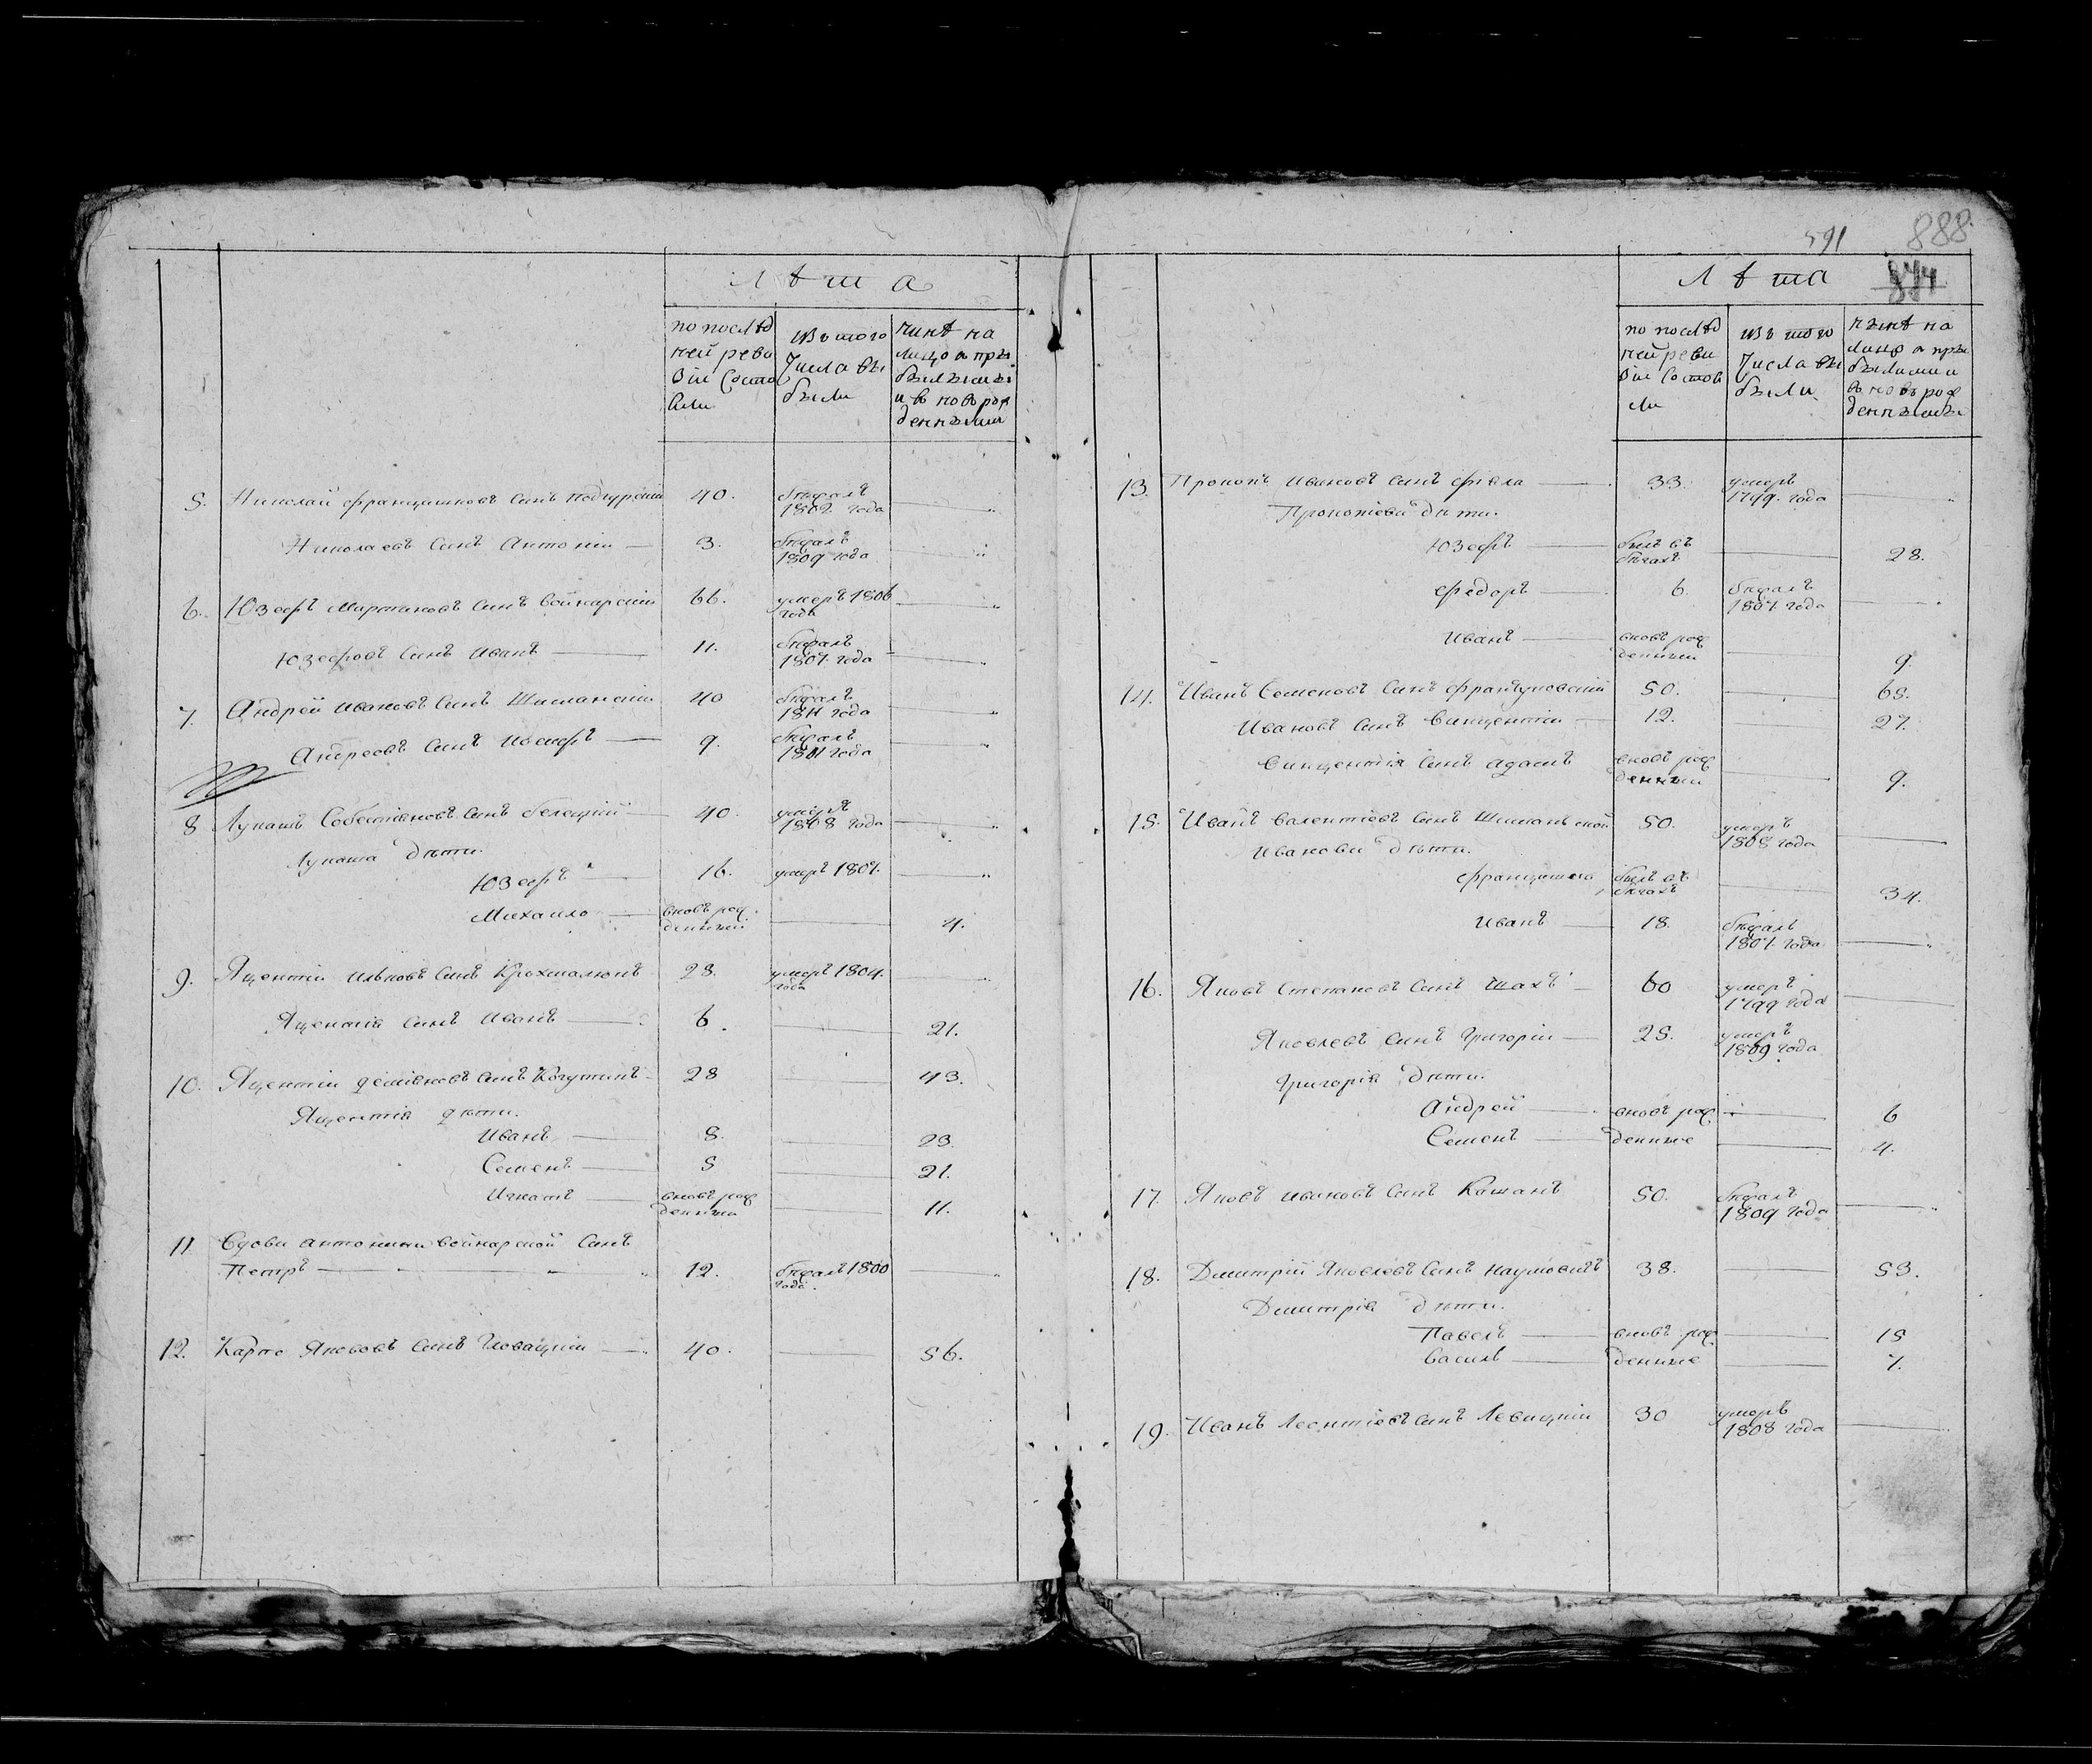 Лѣта
по послѣд
ней реви
зіи состо
яли
изъ того
числа вы
были
нинѣ на
лицо съ при
былыми
и въ новърож
денными
5. Николай Францишковъ синъ Подгурскій 40. бѣжалъ
1802. года
Николаевъ синъ Антоній 3. бѣжалъ
1809 года
6. Юзефъ Мартиновъ синъ Войнарскій 66. умеръ 1806
года
Юзефовъ синъ Иванъ 11. бѣжалъ
1807. года
7. Андрей Ивановъ синъ Шиманскій 40 бѣжалъ
1811 года
Андреевъ синъ Иосифъ 9. бѣжалъ
1811 года
8 Лукашъ Собестіяновъ синъ Белецкій 40. умеръ
1808 года
Лукаша дѣти.
Юзефъ 16. умеръ 1807.
Михайло вновь рож
денный 4.
9. Яцентій Ивановъ синъ Крохмалюкъ 28. умеръ 1804.
года
Яцентія синъ Иванъ 6. 21.
10. Яцентій Деміяновъ синъ 28 43.
Яцентія дѣти.
Иванъ 8. 23.
Семенъ 5 21.
Игнатъ вновь рож
денный 11.
11 Вдови Антонини Войнарской синъ
Петръ 12. бѣжалъ 1800
года.
12. Карпо Якововъ синъ Гловацкій 40. 56.
591 888
Лѣта 874
по послѣд
ней реви
зіи состоя
ли
изъ того
числа вы
были
нынѣ на
лицо съ при
былыми и
въ новърож
денными
13. Прокопъ Ивановъ синъ 33. умеръ
1799. года
Прокопіеви дѣти.
Юзефъ былъ въ
бѣгахъ 28.
Федоръ 6. бѣжалъ
1807. года
Иванъ вновь рож
денный 9.
14. Иванъ Семеновъ синъ Францковскій 50. 65.
Ивановъ синъ Винцентій 12. 27.
Винцентія синъ Адамъ вновь рож
денный 9.
15. Иванъ Валентіевъ синъ Шиманской 50. умеръ
1808 года
Иванови дѣти.
Францишко былъ въ
бѣгахъ 34.
Иванъ 18. бѣжалъ
1807. года
16. Яковъ Степановъ синъ Шахъ 60 умеръ
1799 года
Яковлевъ синъ Григорій 25. умеръ
1809 года
Григорія дѣти.
Андрей вновь рож 6
Семенъ денные 4.
17. Яковъ Ивановъ синъ Кошанъ 50. бѣжалъ
1809 года
18. Дмитрій Яковлевъ синъ Наумовичъ 38. 53.
Дмитрія дѣти.
Павелъ вновь рож 15
Василь денные 7.
19. Иванъ Леонтіевъ синъ Левицкій 30 умеръ
1808 года